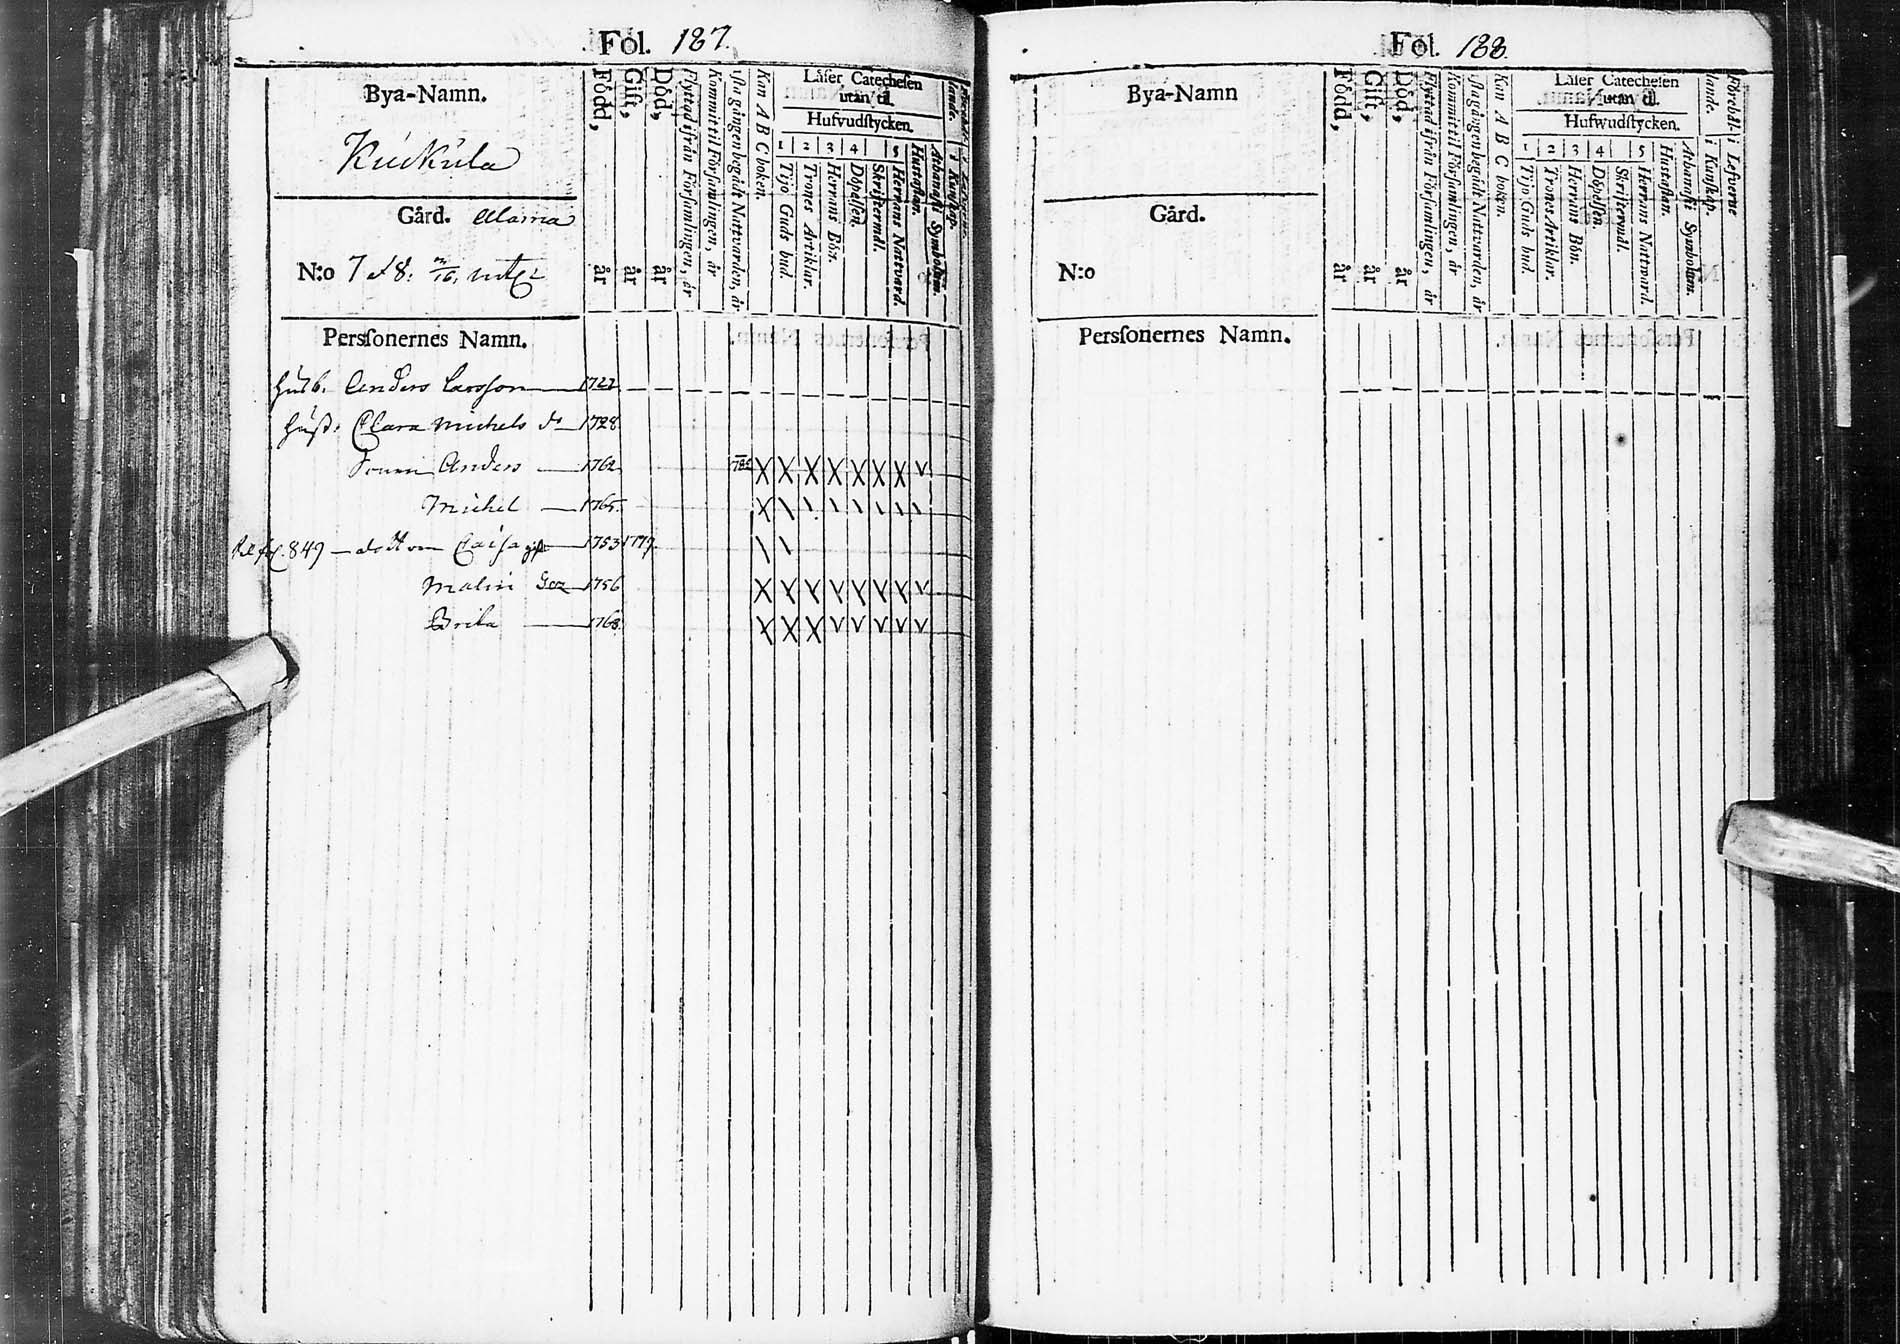 Fol. 187.
Bya-Namn.
Kuckula
Gård. Alama
N:o 7 et 8.
Född, år
Gift, år
Död, år
Flyttad ifrån Församlingen, år
Kommit til Församlingen, år
1sta gången begådt Nattvarden, år
Kan A B C boken.
Läser Catechesen
utan til.
Hufvudstycken.
1 2 3 4 5
Tijo Guds bud.
Trones Artiklar.
Herrans Bön.
Döpelsen.
Skriftermål.
Herrans Nattvard.
Hustaflan.
Athanasii Symbolum.
Persſonernes Namn.
Husb. Anders Larsson 1722
Hust. Clara Michels dr 1728
Sonen Anders 1762 1782
Michel 1765
fol. 849 dottren Caisa gift 1753 1777.
Malin 1756
Brita 1768
Fol. 188.
Bya-Namn
Gård.
N:o
Född, år
Gift, år
Död, år
Flyttad ifrån Församlingen, år
Kommit til Församlingen, år
1sta gången begådt Nattvarden, år
Kan A B C boken.
Läser Catechesen
utan til.
Hufwudstycken.
1 2 3 4 5
Tijo Guds bud.
Trones Artiklar.
Herrans Bön.
Döpelsen.
Skriftermål.
Herrans Nattward.
Hustaflan.
Athanasii Symbolum.
i Kunskap.
i Lefverne
Persſonernes Namn.